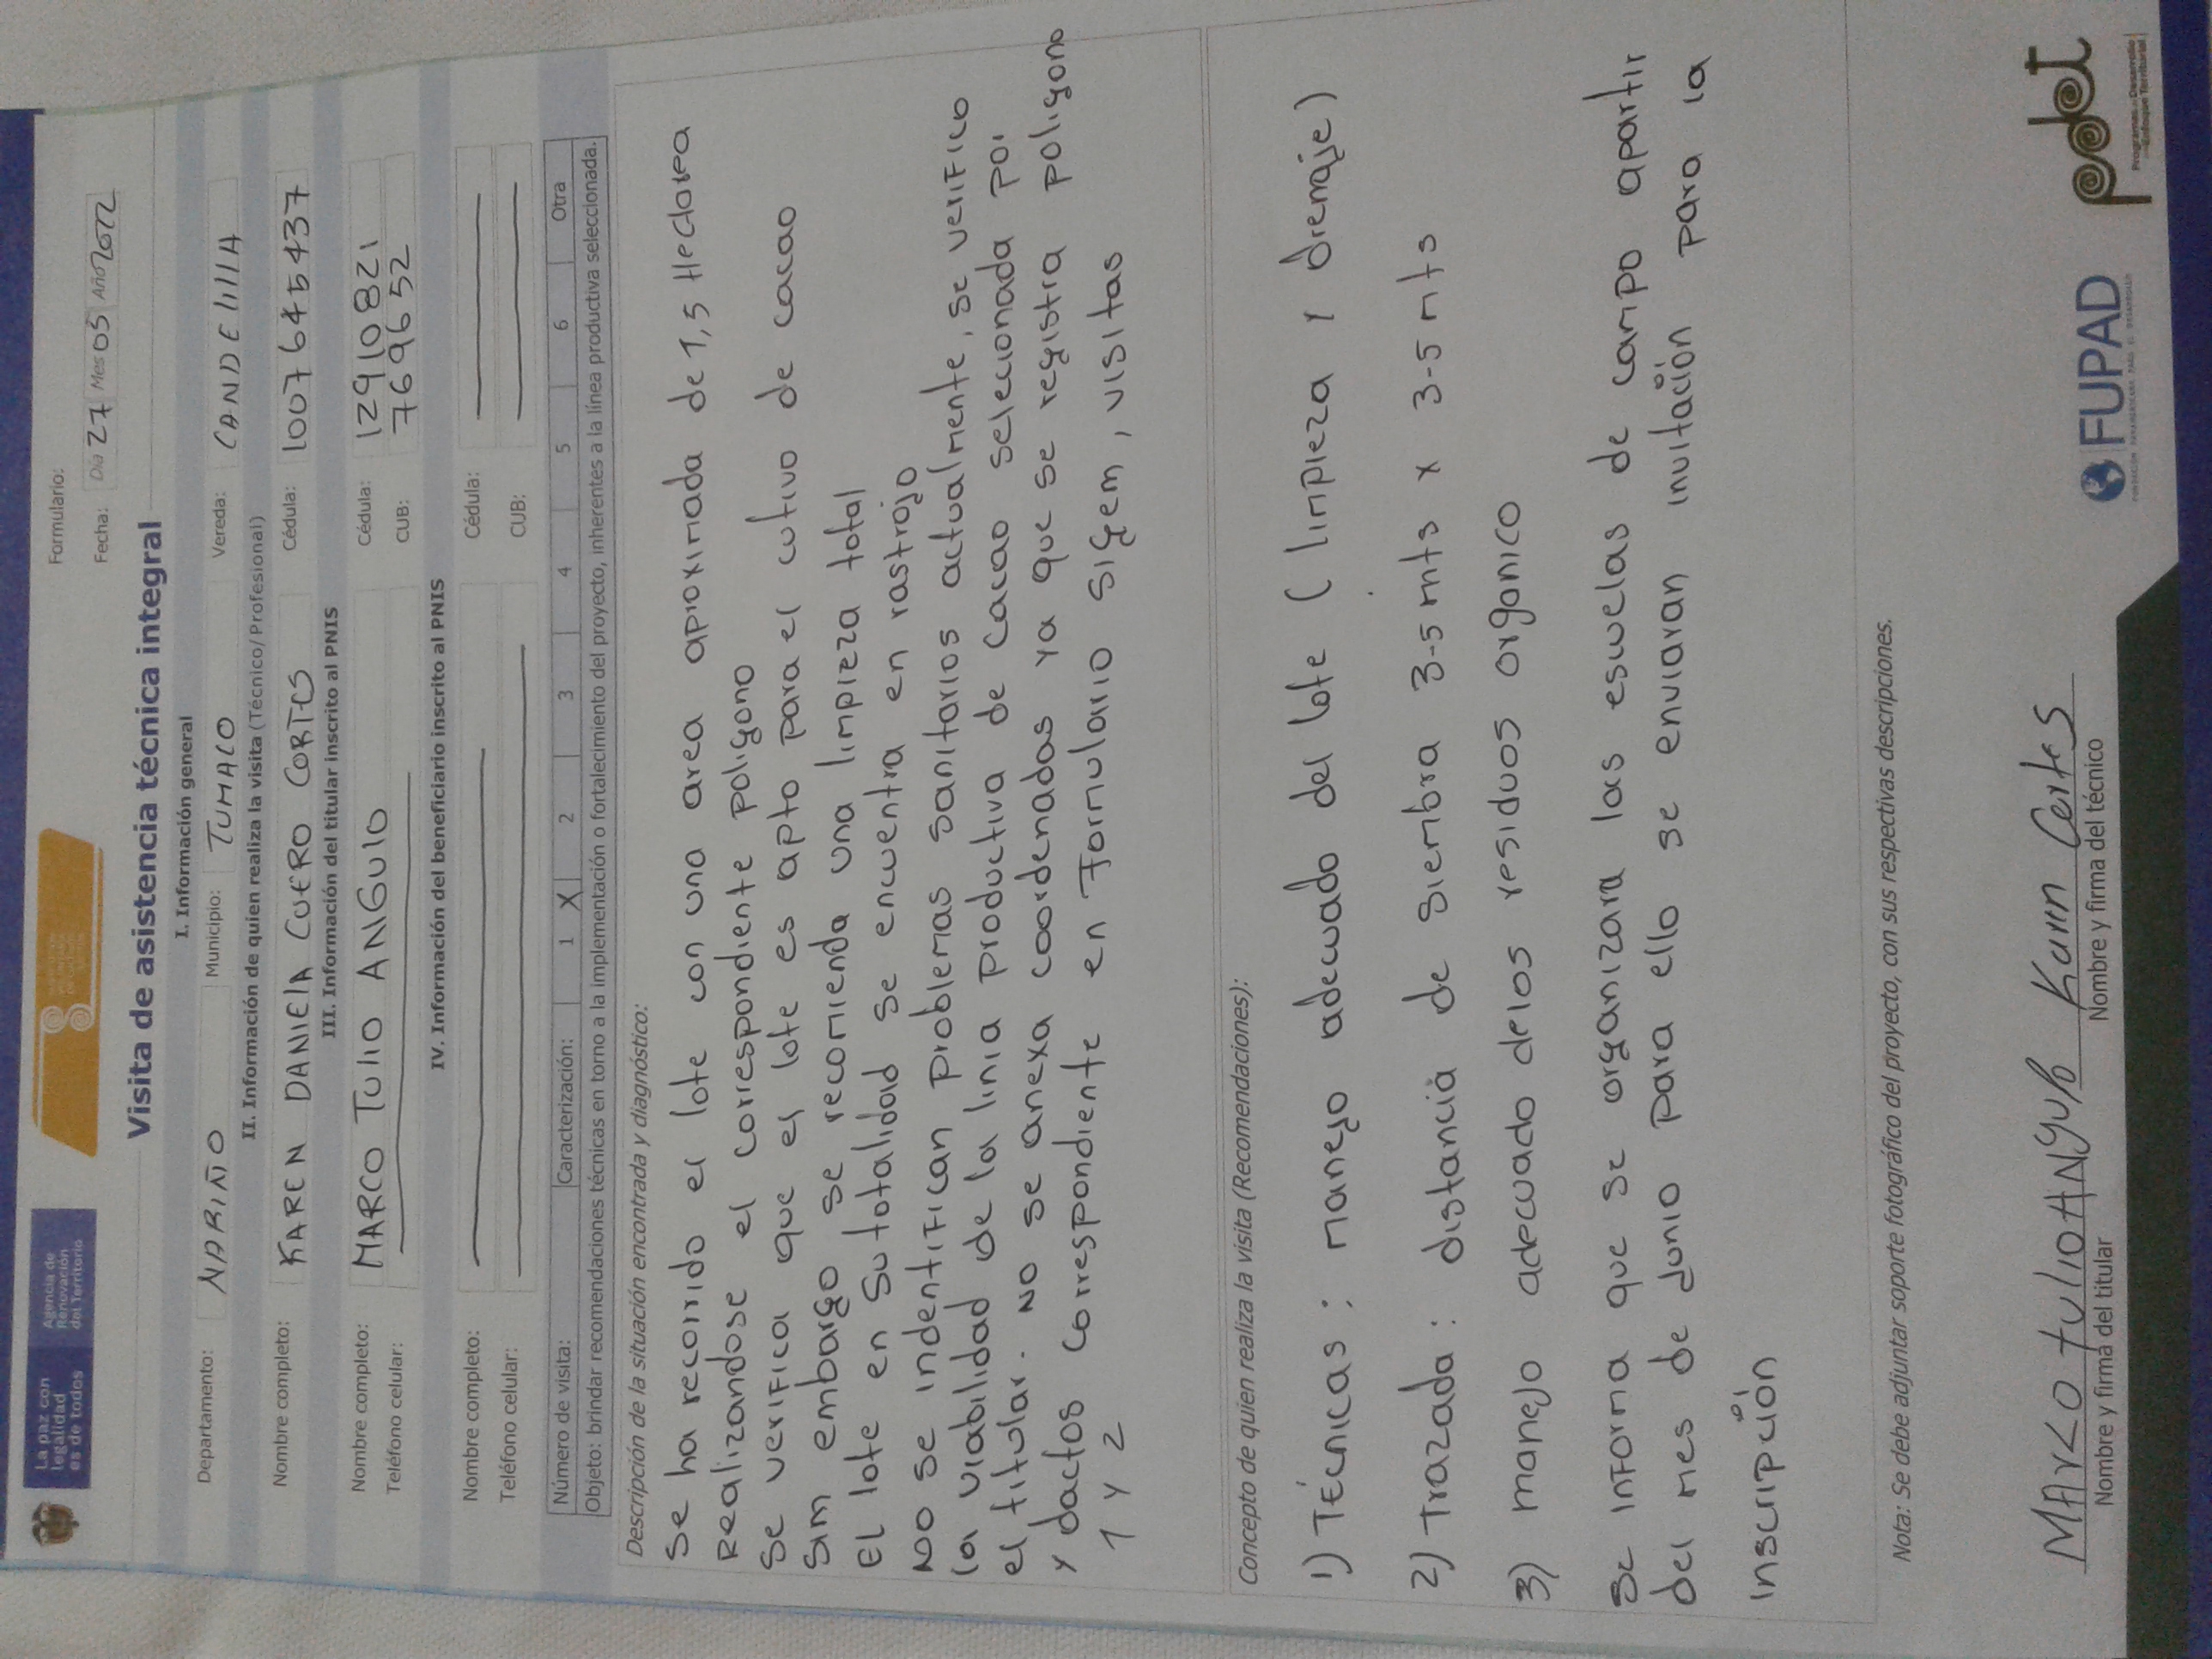 La paz con
legalidad
es de todos
Agencia de
Renovación
del Territorio
Formulario:
Fecha: Día 27 Mes 05 Año 2022
Visita de asistencia técnica integral
I. Información general
Departamento: NARIÑO Municipio: TUMACO Vereda: CANDElillA
II. Información de quien realiza la visita (Técnico/Profesional)
Nombre completo: KAREN DANIElA CUERO CORTES Cédula: 1007645437
III. Información del titular inscrito al PNIS
Nombre completo: MARCO TUlIO ANGUlO Cédula: 12910821
Teléfono celular: CUB: 769652
IV. Información del beneficiario inscrito al PNIS
Nombre completo: Cédula:
Teléfono celular: CUB:
Número de visita: Caracterización: 1 X 2 3 4 5 6 Otra
Objeto: brindar recomendaciones técnicas en torno a la implementación o fortalecimiento del proyecto, inherentes a la línea productiva seleccionada.
Descripción de la situación encontrada y diagnóstico:
Se ha recorrido el lote con una area aproximada de 1,5 Hectarea
Realizandose el correspondiente poligono
Se verifica que el lote es apto para el cutivo de cacao
Sim embargo se recomienda una limpieza total
El lote en su totalidad se encuentra en rastrojo
No se indentifican problemas sanitarios actualmente, se verifico
la viabilidad de la linia productiva de cacao selecionada por
el titular. No se anexa coordenadas ya que se registra poligono
y dactos correspondiente en Formulario sigem, visitas
1 y 2
Concepto de quien realiza la visita (Recomendaciones):
1) Técnicas: manejo adecuado del lote (limpieza y drenaje)
2) Trazada: distancia de siembra 3-5 mts x 3-5 mts
3) manejo adecuado delos residuos organico
Se informa que se organizara las escuelas de campo apartir
del mes de Junio para ello se enviaran invitación para la
inscripción
Nota: Se debe adjuntar soporte fotográfico del proyecto, con sus respectivas descripciones.
MARCO tulio ANGulo
Nombre y firma del titular
Karen Cortes
Nombre y firma del técnico
FUPAD
pdet
Programas de Desarrollo
con Enfoque Territorial